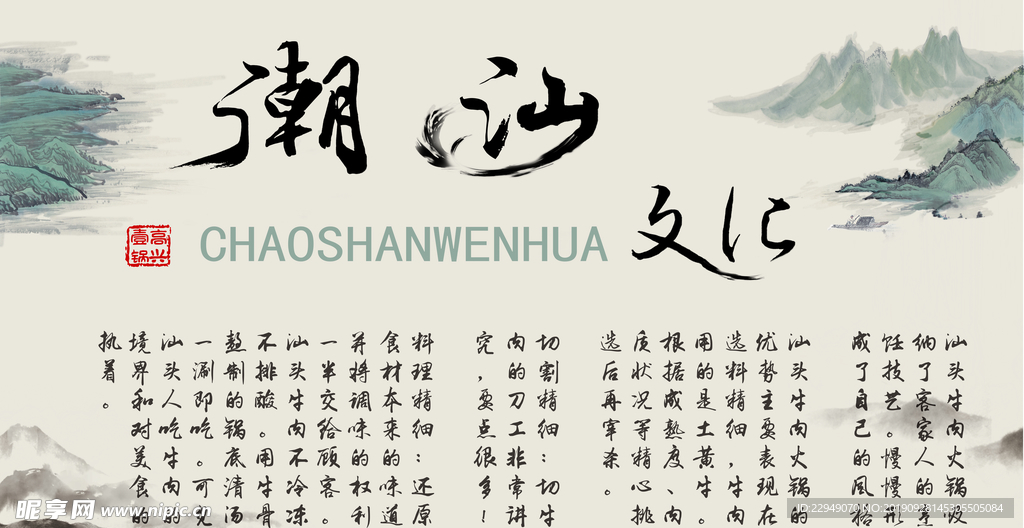 潮汕
文化
CHAOSHANWENHUA
高兴
壹锅
汕头牛肉火锅吸
纳了客家人的烹
饪技艺。慢慢形
成了自己的风格
汕头牛肉火锅的
优势主要表现在
选料精细，牛肉
用的是土黄牛
根据成熟度、肉
质状况等精心挑
选后再宰杀。
切割精细：切牛
肉的刀工非常讲
究，要点很多！
料理精细：还原
食材本来的味道
并将调味的权利
一半交给顾客。
汕头牛肉不冷冻
不排酸。用牛骨
熬制的锅底清汤
一涮即吃。可见
汕头人吃牛肉的
境界和对美食的
执着。
昵享网 www.nipic.cn
ID:22949070 NO:20190928145305505084